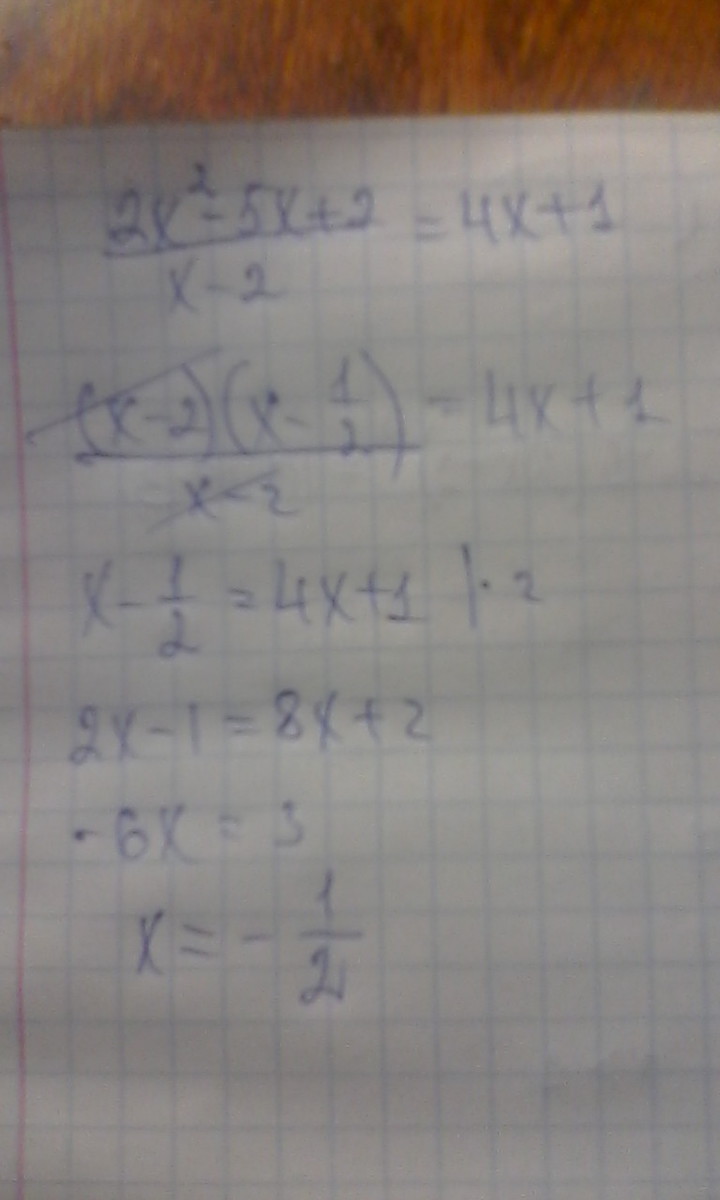 2x²-5x+2 = 4x+1
x-2
(x-2)(x-1/2) = 4x+1
x-2
x-1/2 = 4x+1 |·2
2x-1=8x+2
-6x=3
x=-1/2